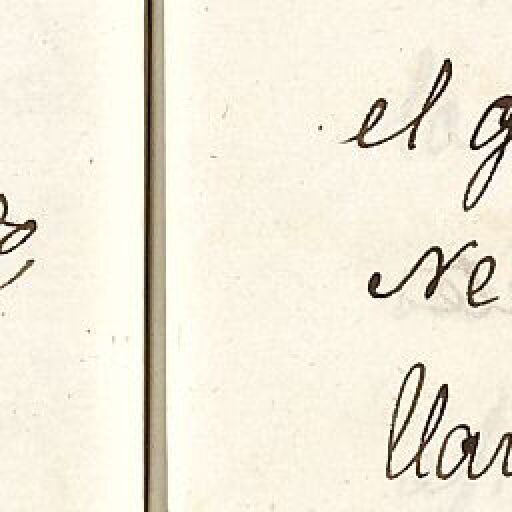 el g
Ne
llar